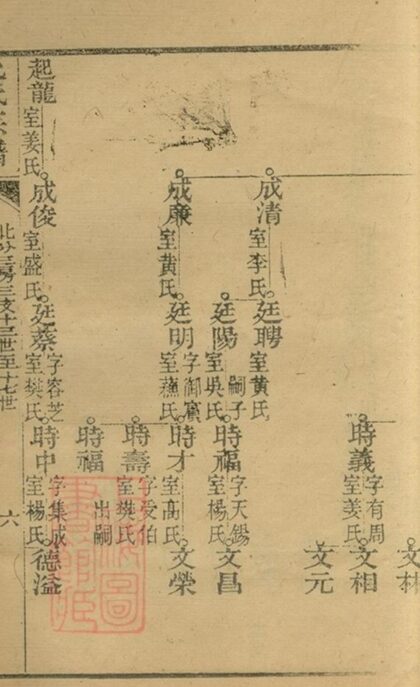 文林
時義 字有周 室姜氏
文相
文元
成清 室李氏
廷聘 室黄氏
廷陽 室吳氏 嗣子
時福 字天錫 室楊氏
文昌
成廉 室黄氏
廷明 字御賔 室蕭氏
時才 室高氏
文榮
時壽 字受伯 室樊氏
時福 出嗣
起龍 室姜氏
成俊 室盛氏
廷蔡 字容芝 室樊氏
時中 字集成 室楊氏
德溢
氏宗譜
北分三房三支十三世至十七世
六